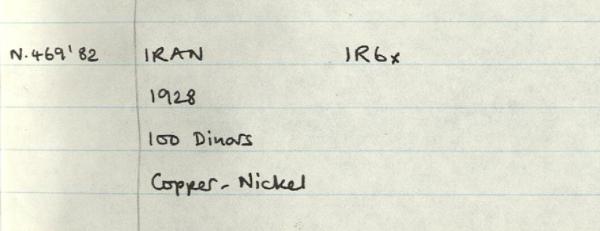 N.469'82 IRAN IR6x
1928
100 Dinars
Copper-Nickel